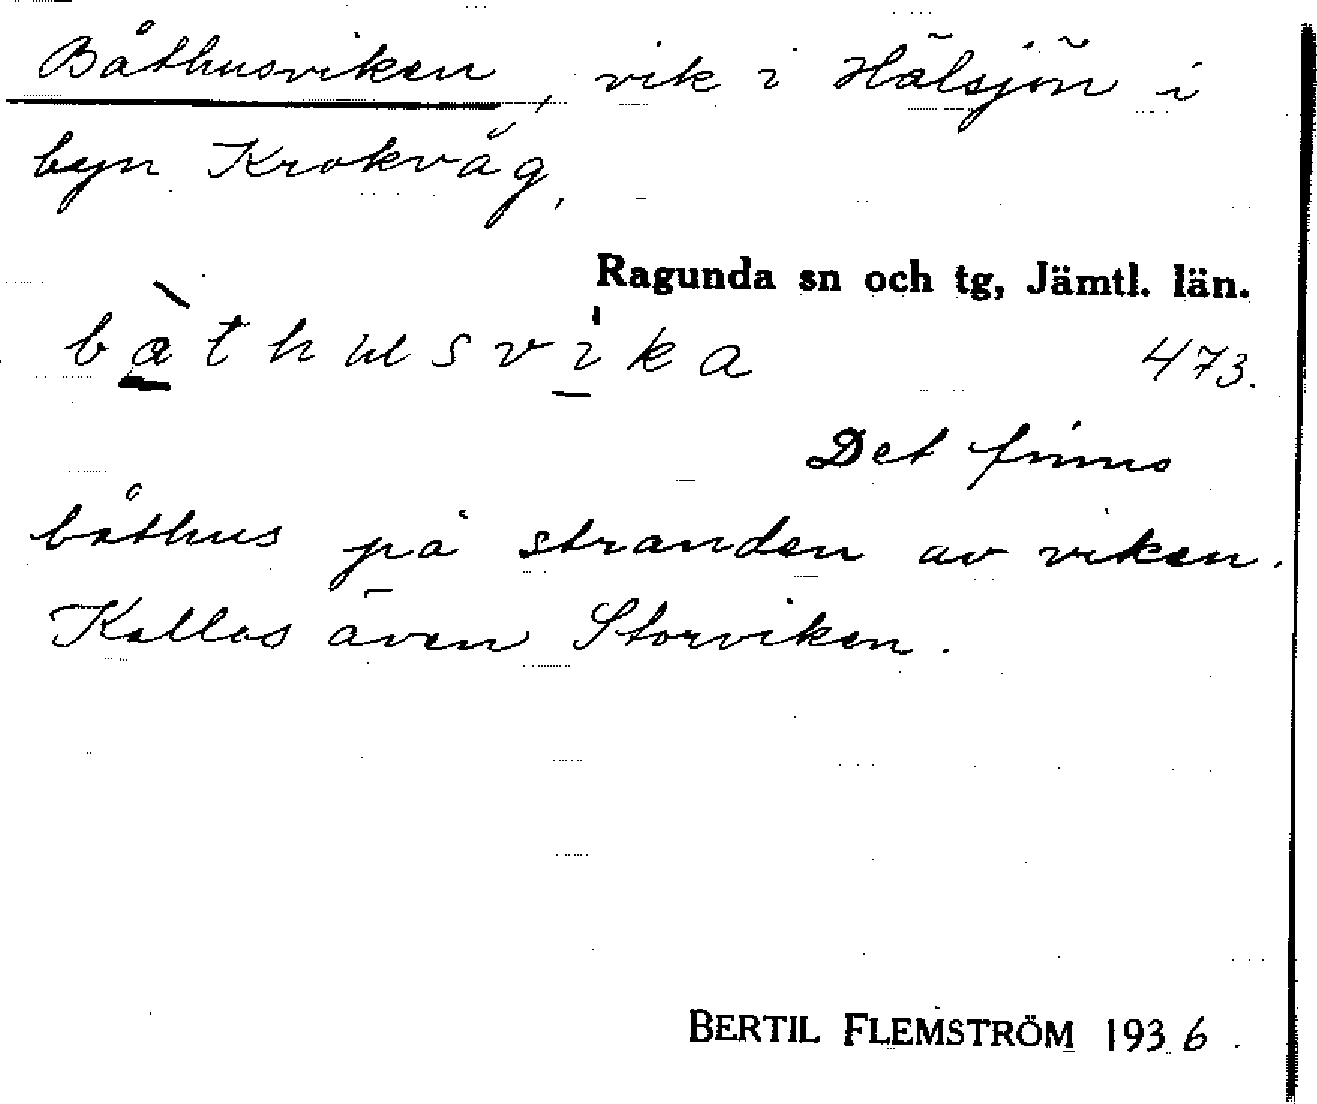 Båthusviken, vik i Hälsjön i
byn Krokvåg,
Ragunda sn och tg, Jämtl. län.
bàthusvika 473.
Det finns
båthus på stranden av viken.
Kallas även Storviken.
BERTIL FLEMSTRÖM 1936.